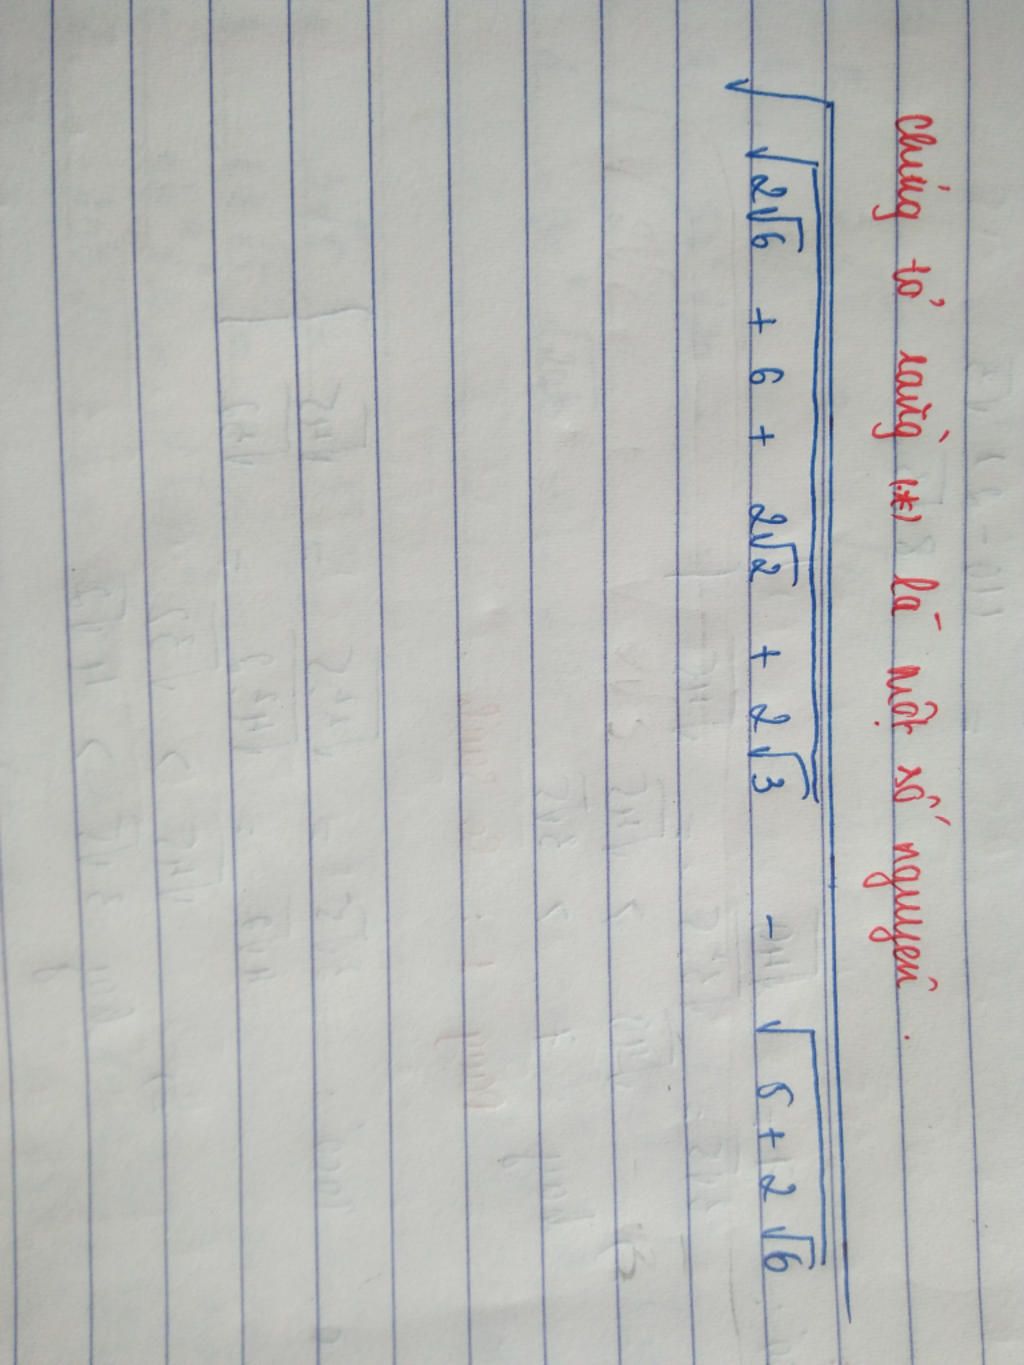 chứng tỏ rằng (*) là một số nguyên.
√(√(2√6 + 6 + 2√2 + 2√3) - √(5 + 2√6))